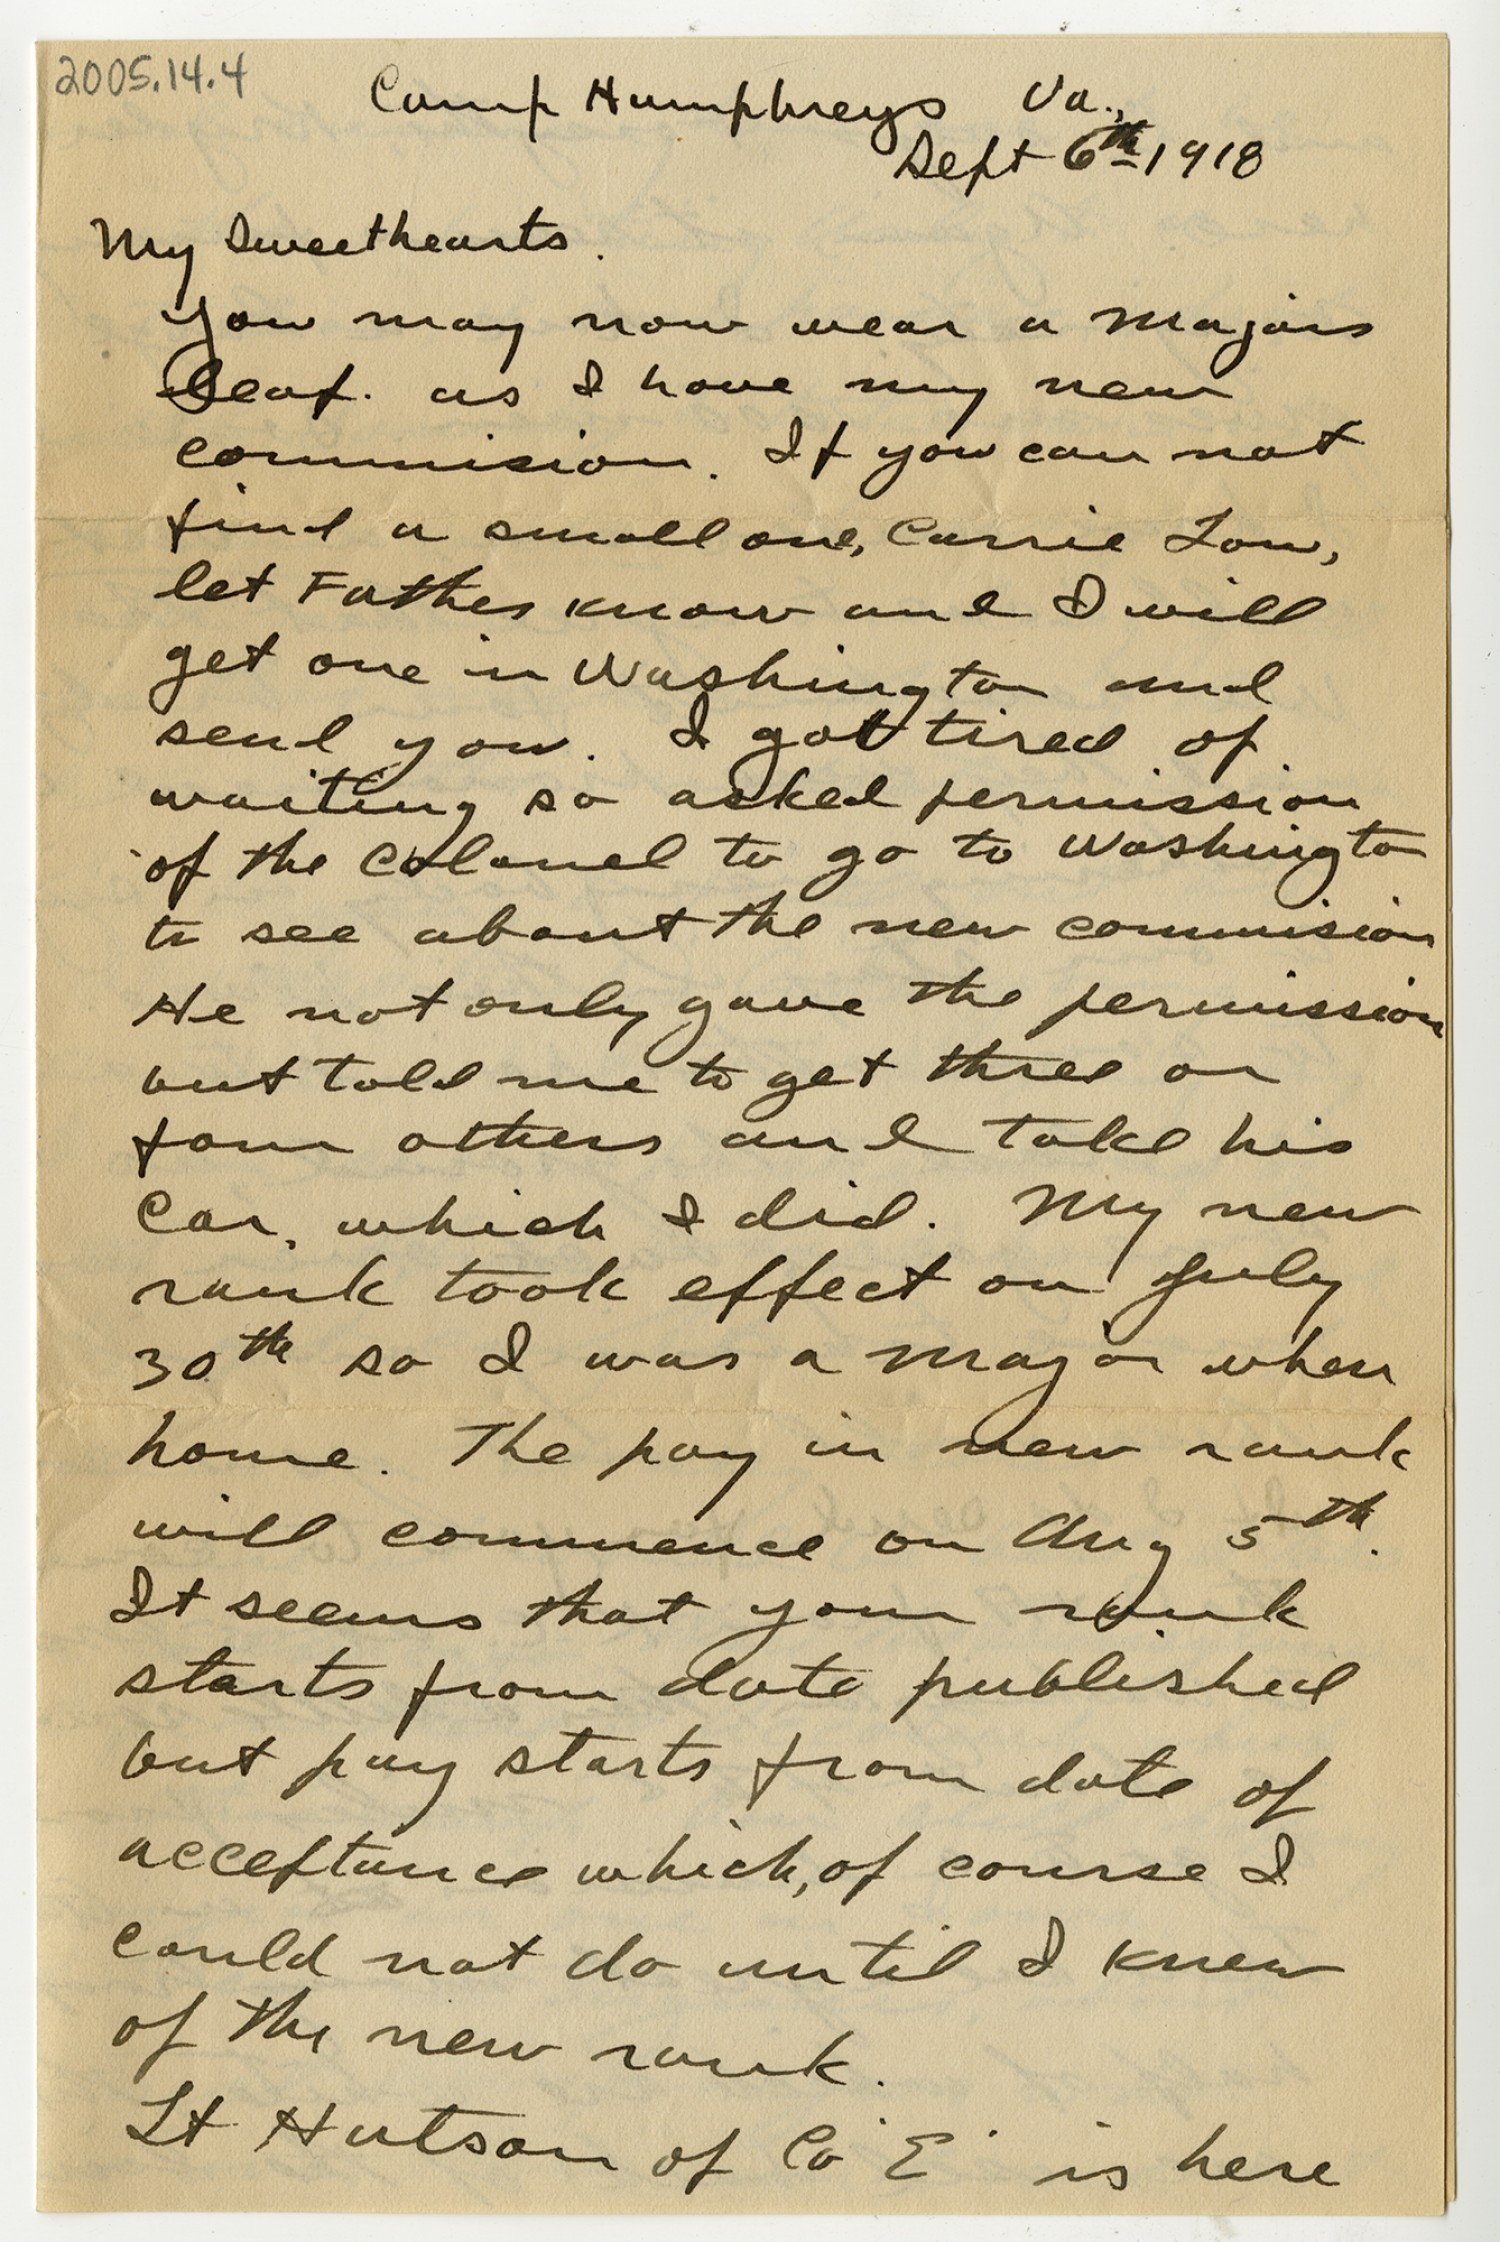 2005.14.4
Camp Humphreys Va.,
Sept 6th 1918
My Sweethearts.
You may now wear a Majors
Leaf. as I have my new
commision. If you can not
find a small one, Carrie Lou,
let Father know and I will
get one in Washington and
send you. I got tired of
waiting so asked permission
of the Colonel to go to Washington
to see about the new commision
He not only gave the permission
but told me to get three or
four others and take his
Car, which I did. My new
rank took effect on July
30th so I was a Major when
home. The pay in new rank
will commence on Aug 5th.
It seems that your rank
starts from date published
but pay starts from date of
acceptance which, of course I
could not do until I knew
of the new rank.
Lt Hutson of Co "E" is here